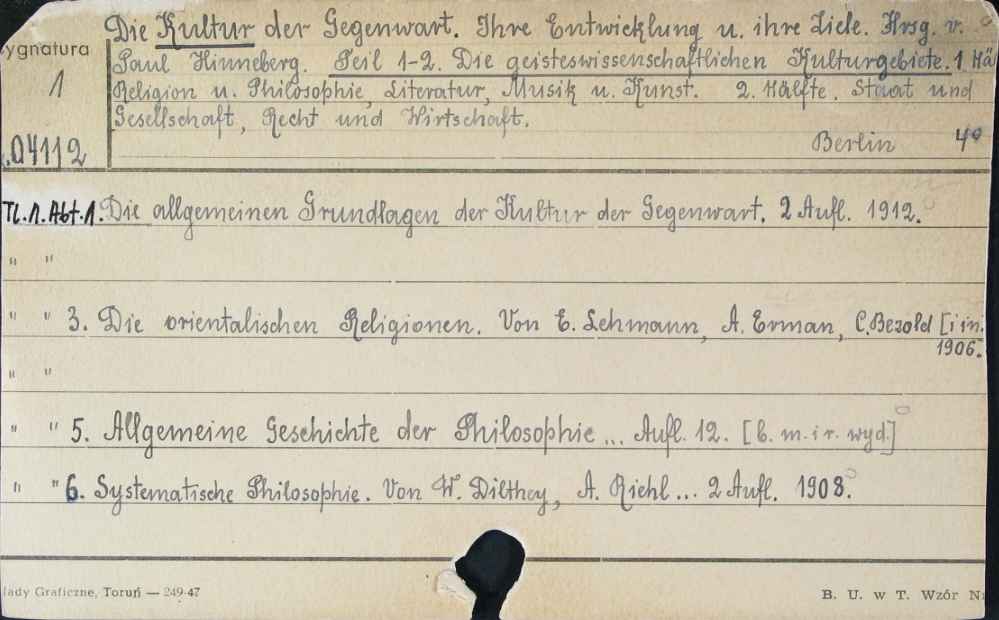 Die Kultur der Gegenwart. Ihre Entwicklung u. ihre Ziele. Hrsg. v.
ygnatura
Paul Hinneberg. Teil 1-2. Die geisteswissenschaftlichen Kulturgebiete. 1 Hä
1
Religion u. Philosophie, Literatur, Musik u. Kunst. 2. Hälfte. Staat und
Gesellschaft, Recht und Wirtschaft.
Berlin 4°
.04112
Tl. 1. Abt. 1. Die allgemeinen Grundlagen der Kultur der Gegenwart. 2 Aufl. 1912.
" "
" " 3. Die orientalischen Religionen. Von E. Lehmann, A. Erman, C. Bezold [i in.
1906.
" "
" " 5. Allgemeine Geschichte der Philosophie ... Aufl. 12. [b. m. i r. wyd.]
" " 6. Systematische Philosophie. Von W. Dilthey, A. Riehl ... 2 Aufl. 1908.
łady Graficzne, Toruń — 249-47
B. U. w T. Wzór N